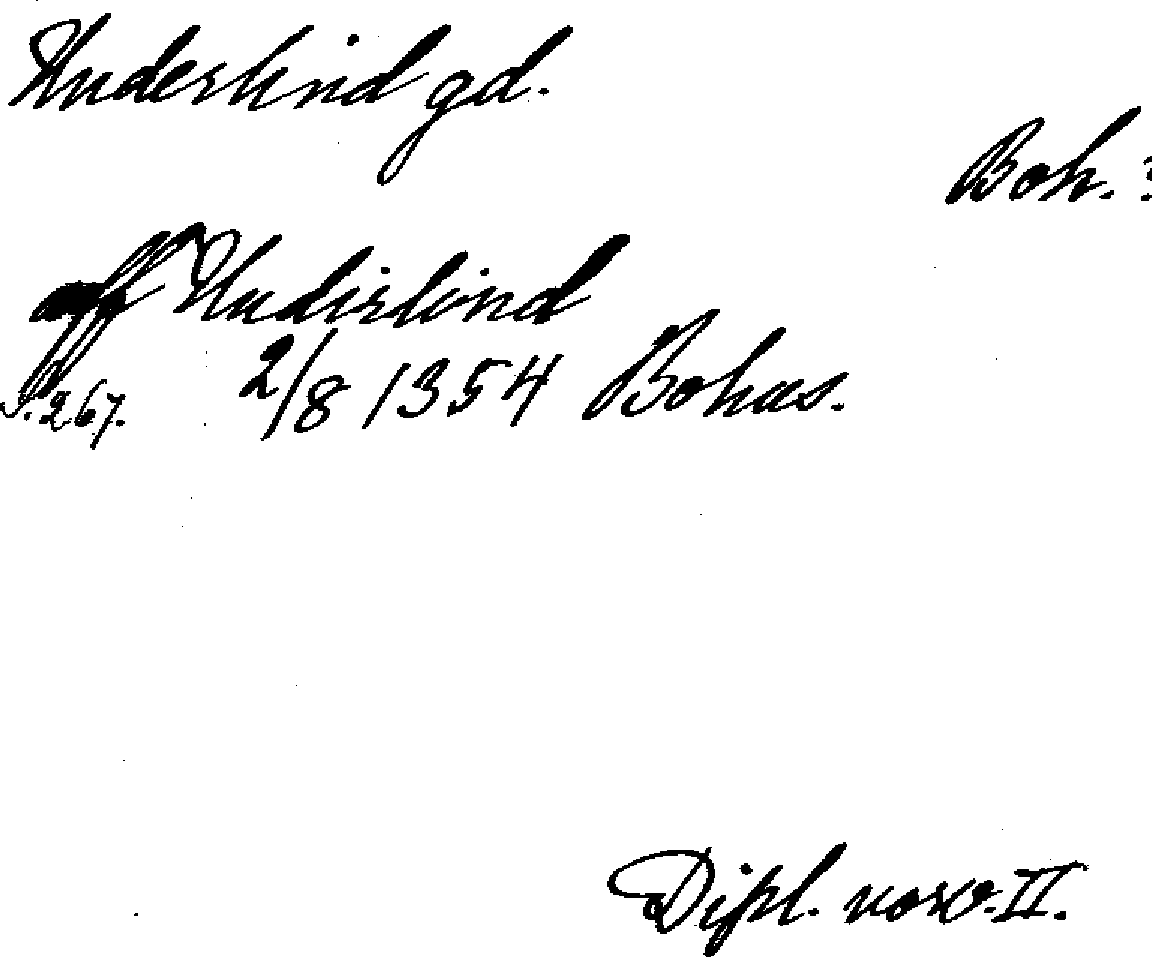 Underlind gd.
Boh. ?
aff Undislind
S. 267. 2/8 1354 Bohus.
Dipl. norv. II.